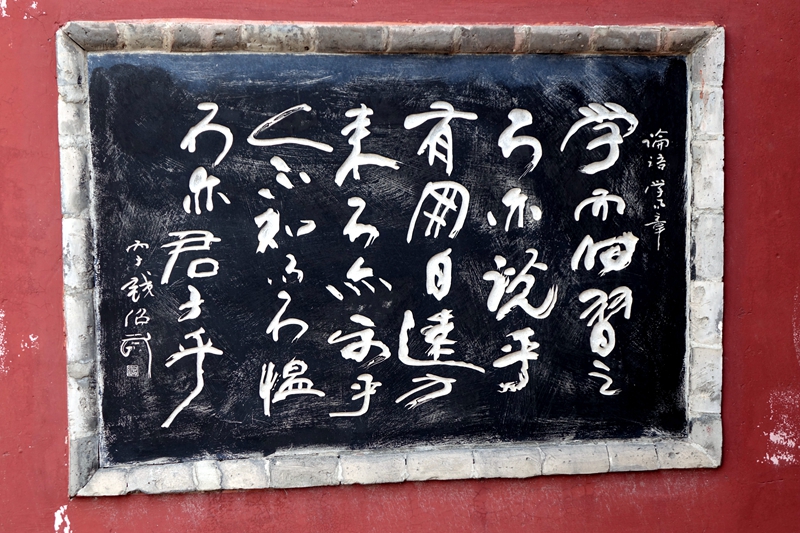 论语 学而章
学而时習之
不亦说乎
有朋自遠方
来不亦乐乎
人不知而不愠
不亦君子乎
丙子 钱绍武